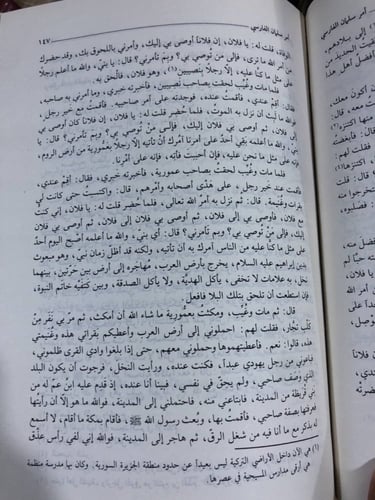 أمر سلمان الفارسي
١٤٧
الوفاة، قلت له: يا فلان، إن فلانا أوصى بي إليك، وأمرني باللحوق بك، وقد حضرك
من أمر الله ما ترى، فإلى من توصي بي؟ وبم تأمرني؟ قال: يا بني، والله ما أعلم رجلا
على مثل ما كنا عليه، إلا رجلا بنصيبين(١)، وهو فلان، فالحق به.
فلما مات وغيب لحقت بصاحب نصيبين، فأخبرته خبري، وما أمرني به صاحبه،
فقال: أقم عندي، فأقمت عنده، فوجدته على أمر صاحبيه. فأقمت مع خير رجل،
فوالله ما لبث أن نزل به الموت، فلما حضر قلت له: يا فلان، إن فلانا كان أوصى بي
إلى فلان، ثم أوصى بي فلان إليك، فإلى من توصي بي؟ وبم تأمرني؟ قال: يا
بني، والله ما أعلمه بقي أحد على أمرنا آمرك أن تأتيه إلا رجلا بعمورية من أرض الروم،
فإنه على مثل ما نحن عليه، فإن أحببت فأته، فإنه على أمرنا.
فلما مات وغيب لحقت بصاحب عمورية، فأخبرته خبري، فقال: أقم عندي،
فأقمت عند خير رجل، على هدى أصحابه وأمرهم، قال: واكتسبت حتى كانت لي
بقرات وغنيمة. قال: ثم نزل به أمر الله تعالى، فلما حضر قلت له: يا فلان، إني كنت
مع فلان، فأوصى بي إلى فلان، ثم أوصى بي فلان إلى فلان، ثم أوصى بي فلان
إليك، فإلى من توصي بي؟ وبم تأمرني؟ قال: أي بني، والله ما أعلمه أصبح اليوم أحد
على مثل ما كنا عليه من الناس آمرك به أن تأتيه، ولكنه قد أظل زمان نبي، وهو مبعوث
بدين إبراهيم عليه السلام، يخرج بأرض العرب، مهاجره إلى أرض بين حرتين، بينهما
نخل، به علامات لا تخفى، يأكل الهدية، ولا يأكل الصدقة، وبين كتفيه خاتم النبوة،
فإن استطعت أن تلحق بتلك البلاد فافعل.
قال: ثم مات وغيب، ومكثت بعمورية ما شاء الله أن أمكث، ثم مر بي نفر من
كلب تجار، فقلت لهم: احملوني إلى أرض العرب وأعطيكم بقراتي هذه وغنيمتي
هذه، قالوا: نعم. فأعطيتهموها وحملوني معهم، حتى إذا بلغوا وادي القرى ظلموني،
فباعوني من رجل يهودي عبدا، فكنت عنده، ورأيت النخل، فرجوت أن يكون البلد
الذي وصف لي صاحبي، ولم يحق في نفسي، فبينا أنا عنده، إذ قدم عليه ابن عم له من
بني قريظة من المدينة، فابتاعني منه، فاحتملني إلى المدينة، فوالله ما هو إلا أن رأيتها
فعرفتها بصفة صاحبي، فأقمت بها، وبعث رسول الله ﷺ، فأقام بمكة ما أقام، لا أسمع
له بذكر مع ما أنا فيه من شغل الرق، ثم هاجر إلى المدينة، فوالله إني لفي رأس عذق
(١) هي الآن داخل الأراضي التركية ليس بعيدا عن حدود منطقة الجزيرة السورية. وكان بها مدرسة منظمة
هي أرقى مدارس المسيحية في عصرها.